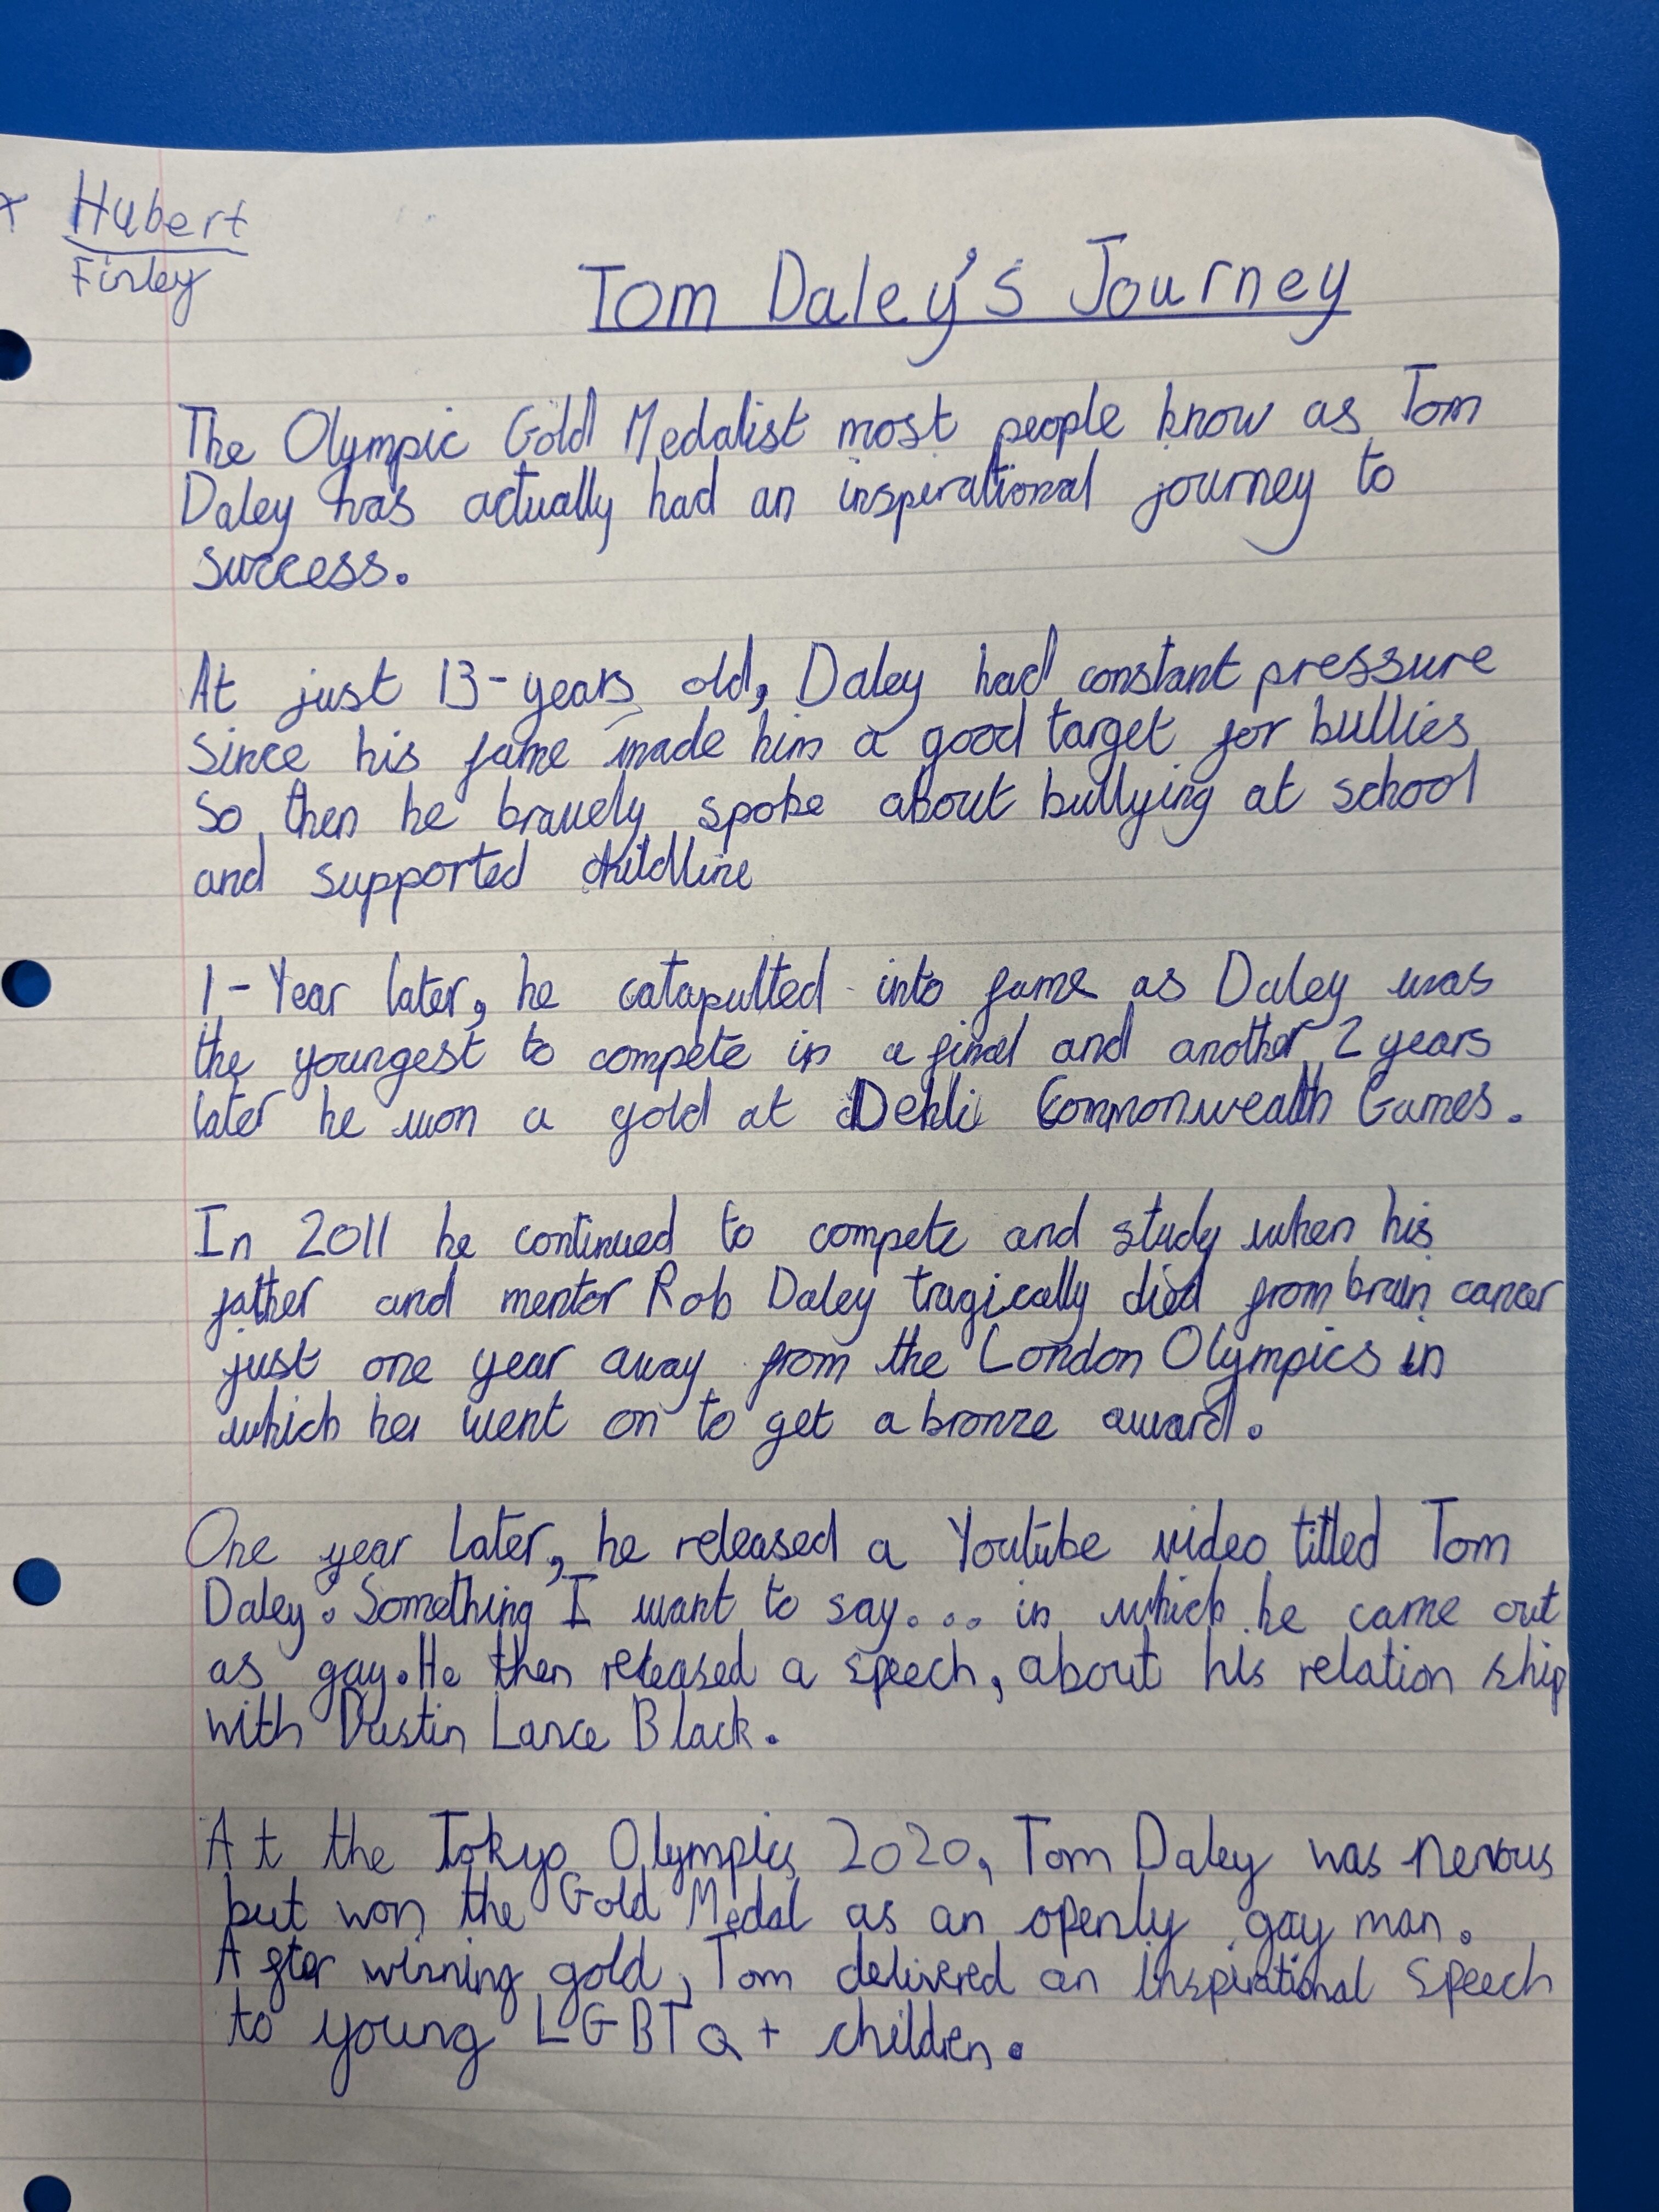 Hubert
Finley
Tom Daley's Journey
The Olympic Gold Medalist most people know as Tom
Daley has actually had an inspirational journey to
success.
At just 13-years old, Daley had constant pressure
since his fame made him a good target for bullies
So then he bravely spoke about bullying at school
and supported childline
1-Year later, he catapulted into fame as Daley was
the youngest to compete in a final and another 2 years
later he won a gold at Dehli Commonwealth Games.
In 2011 he continued to compete and study when his
father and mentor Rob Daley tragically died from brain cancer
just one year away from the London Olympics in
which he went on to get a bronze award.
One year later, he released a Youtube video titled Tom
Daley: Something I want to say... in which he came out
as gay. He then released a speech, about his relation ship
with Dustin Lance Black.
At the Tokyo Olympics 2020, Tom Daley was nervous
but won the Gold Medal as an openly gay man.
After winning gold, Tom delivered an inspirational speech
to young LGBTQ+ children.